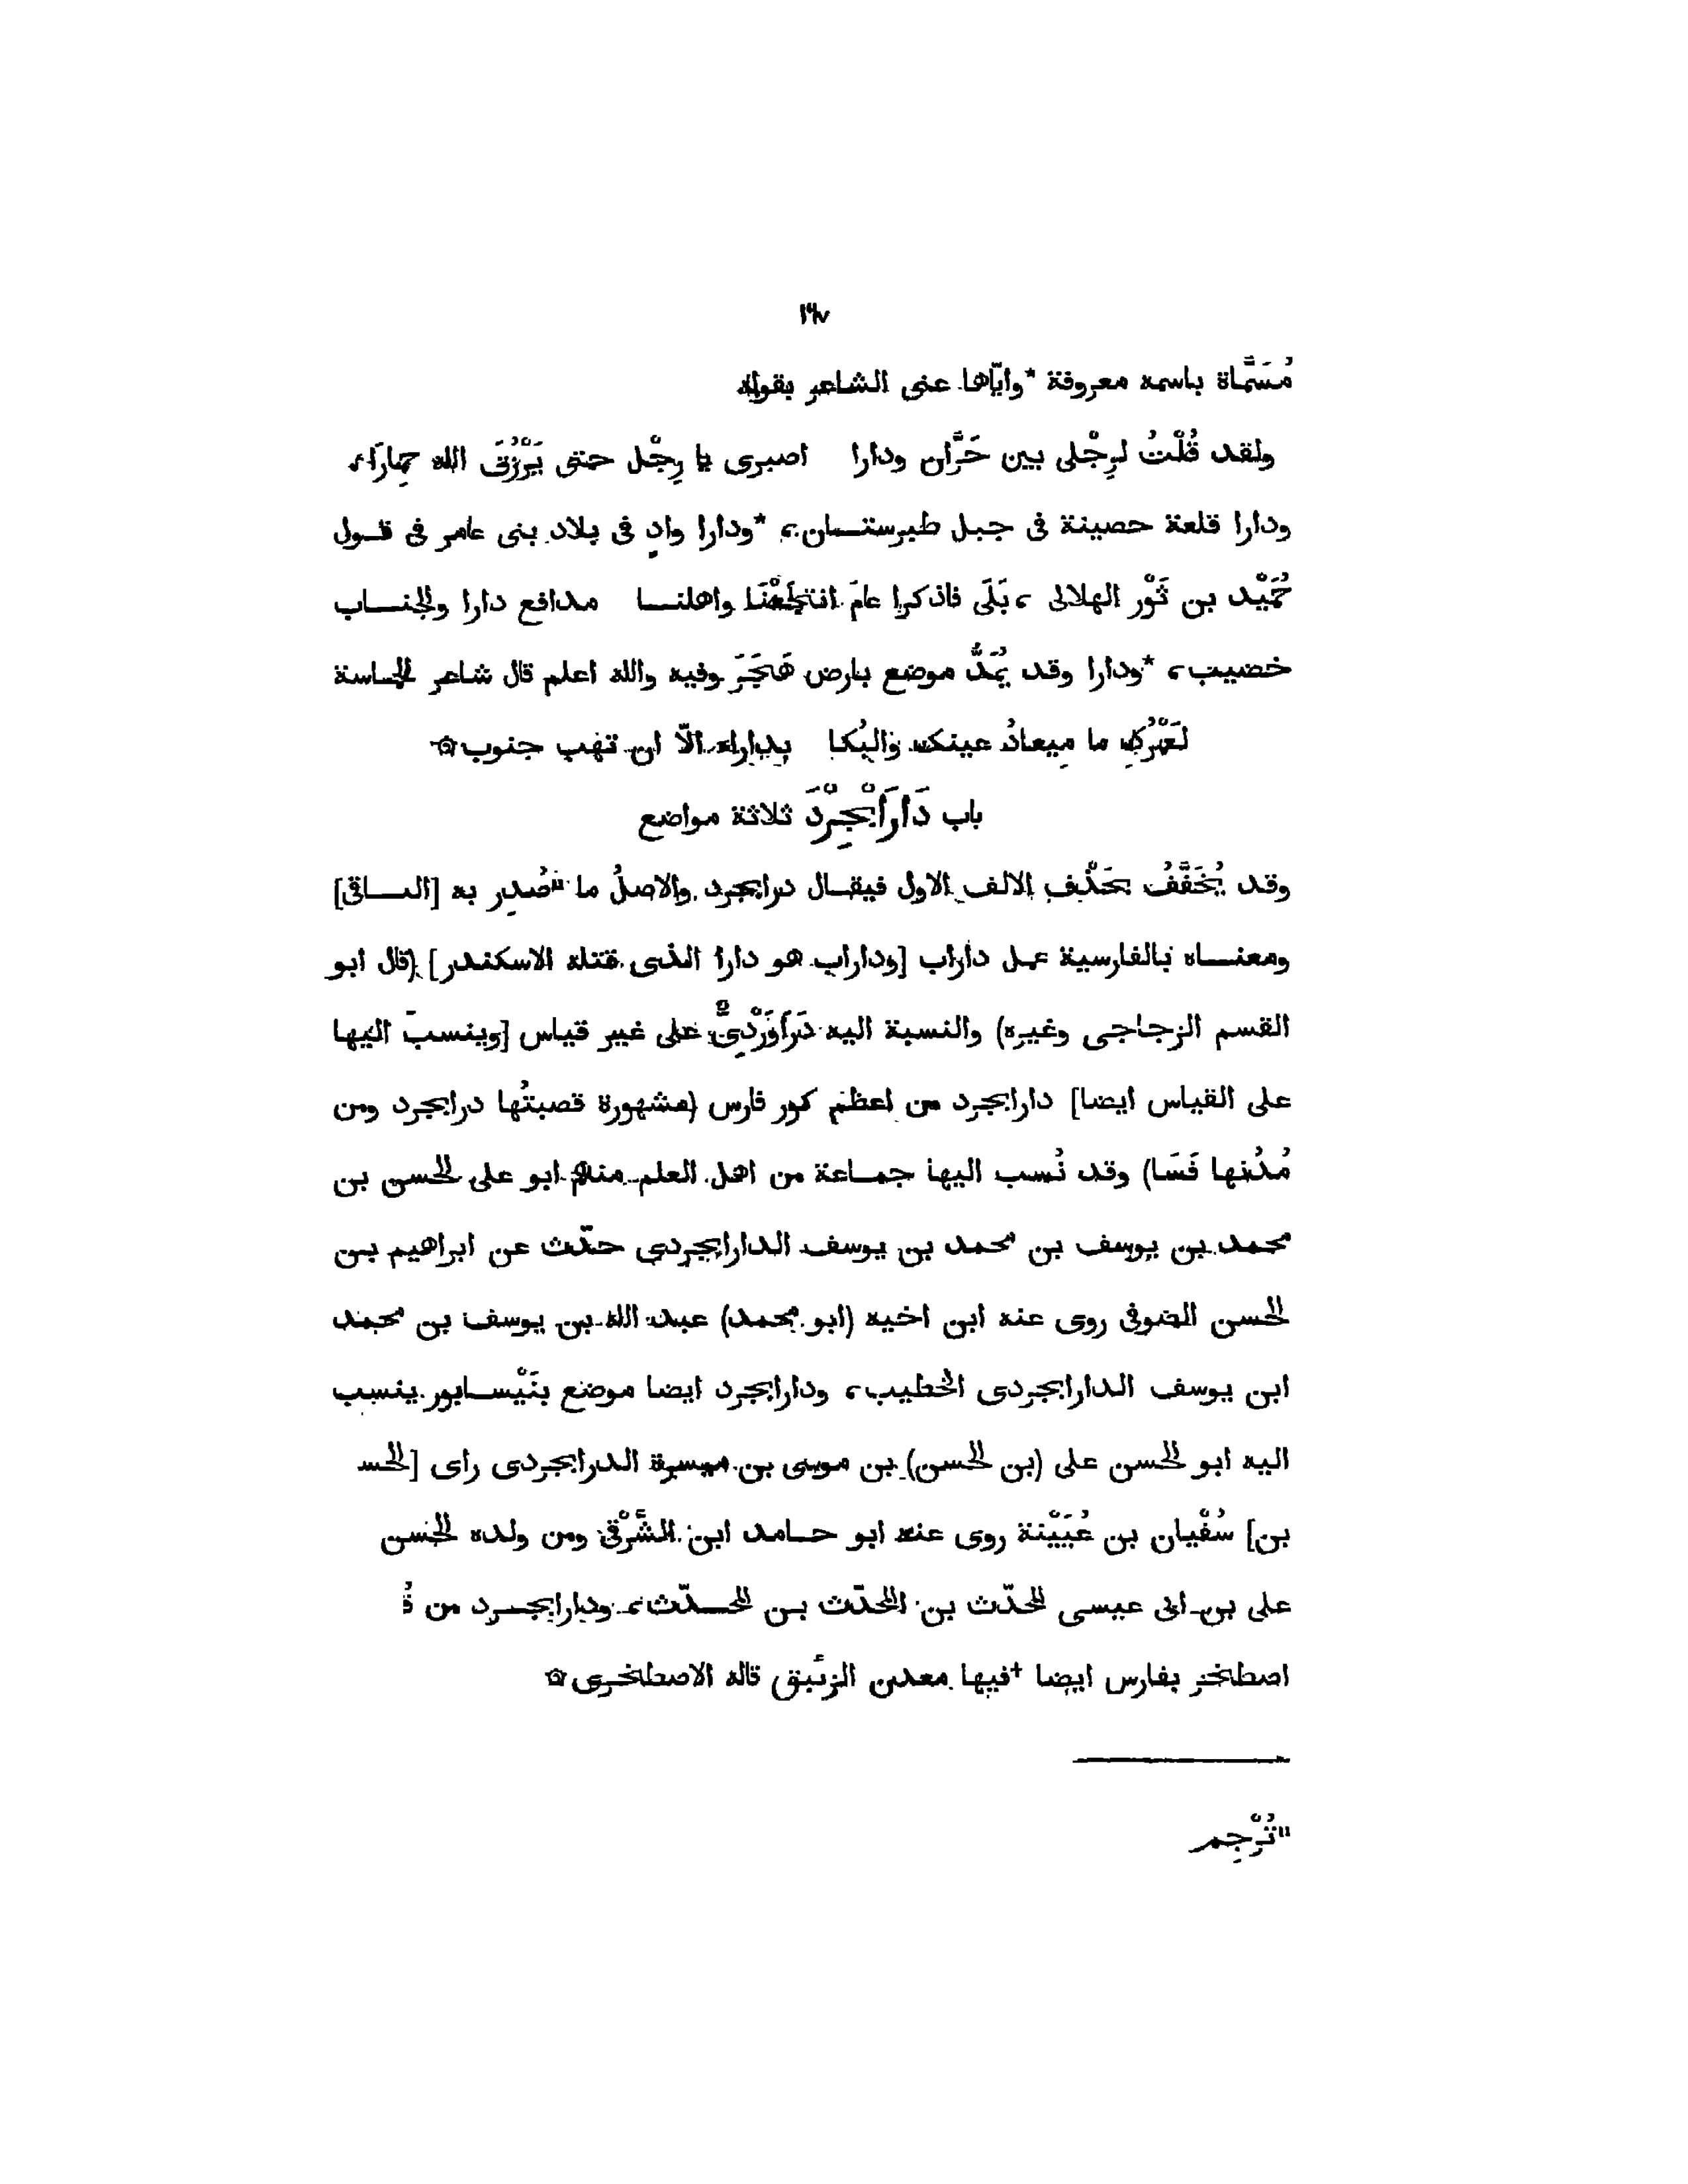 ١٦٧
مُسَمَّاة باسمه معروفة *وايّاها عنى الشاعر بقوله
ولقد قُلْتُ لرِجْلى بين حَرَّان ودارا اصبرى يا رِجْل حتى يَرْزُقَ الله حِمارَا،
ودارا قلعة حصينة فى جبل طبرستــان، *ودارا وادٍ فى بلاد بنى عامر فى قــول
حُمَيْد بن ثَوْر الهلالى، بَلَى فاذكرا عامَ انتجَعْنَا واهلنــا مدافع دارا والجنــاب
خصيب، *ودارا وقد يُمَدُّ موضع بارض هَجَرَ وفيه والله اعلم قال شاعر الحماسة
لَعَمْرُكِ ما مِيعادُ عينك والبُكا بداراء الّا ان تهب جنوب۞
باب دَارَابْجِرْدَ ثلاثة مواضع
وقد يُخَفَّفُ بحَذْفِ الالف الاول فيقــال درابجرد والاصلُ ما "صُدِر به [البــاقى]
ومعنــاه بالفارسية عمل داراب [وداراب هو دارا الذى قتله الاسكندر] (قال ابو
القسم الزجاجى وغيره) والنسبة اليه دَرَاوَرْدِىٌّ على غير قياس [وينسب اليها
على القياس ايضا] دارابجرد من اعظم كور فارس (مشهورة قصبتُها درابجرد ومن
مُدُنها فَسَا) وقد نُسب اليها جمــاعة من اهل العلم منهم ابو على الحسن بن
محمد بن يوسف بن محمد بن يوسف الدارابجردى حدّث عن ابراهيم بــن
الحسن الصوفى روى عنه ابن اخيه (ابو محمد) عبد الله بن يوسف بن محمد
ابن يوسف الدارابجردى الخطيب، ودارابجرد ايضا موضع بنَيْســابور ينسب
اليه ابو الحسن على (بن الحسن) بن موسى بن ميسرة الدرابجردى راى [الحســ
بن] سُفْيان بن عُيَيْنة روى عنه ابو حــامد ابن الشَّرْقى ومن ولده الحسن
على بن ابى عيسى المحدّث بن المحدّث بــن المحــدّث، ودارابجــرد من قُ
اصطخر بفارس ايضا +فيها معدن الزئَبق قاله الاصطخرى۞
"تُرْجِم